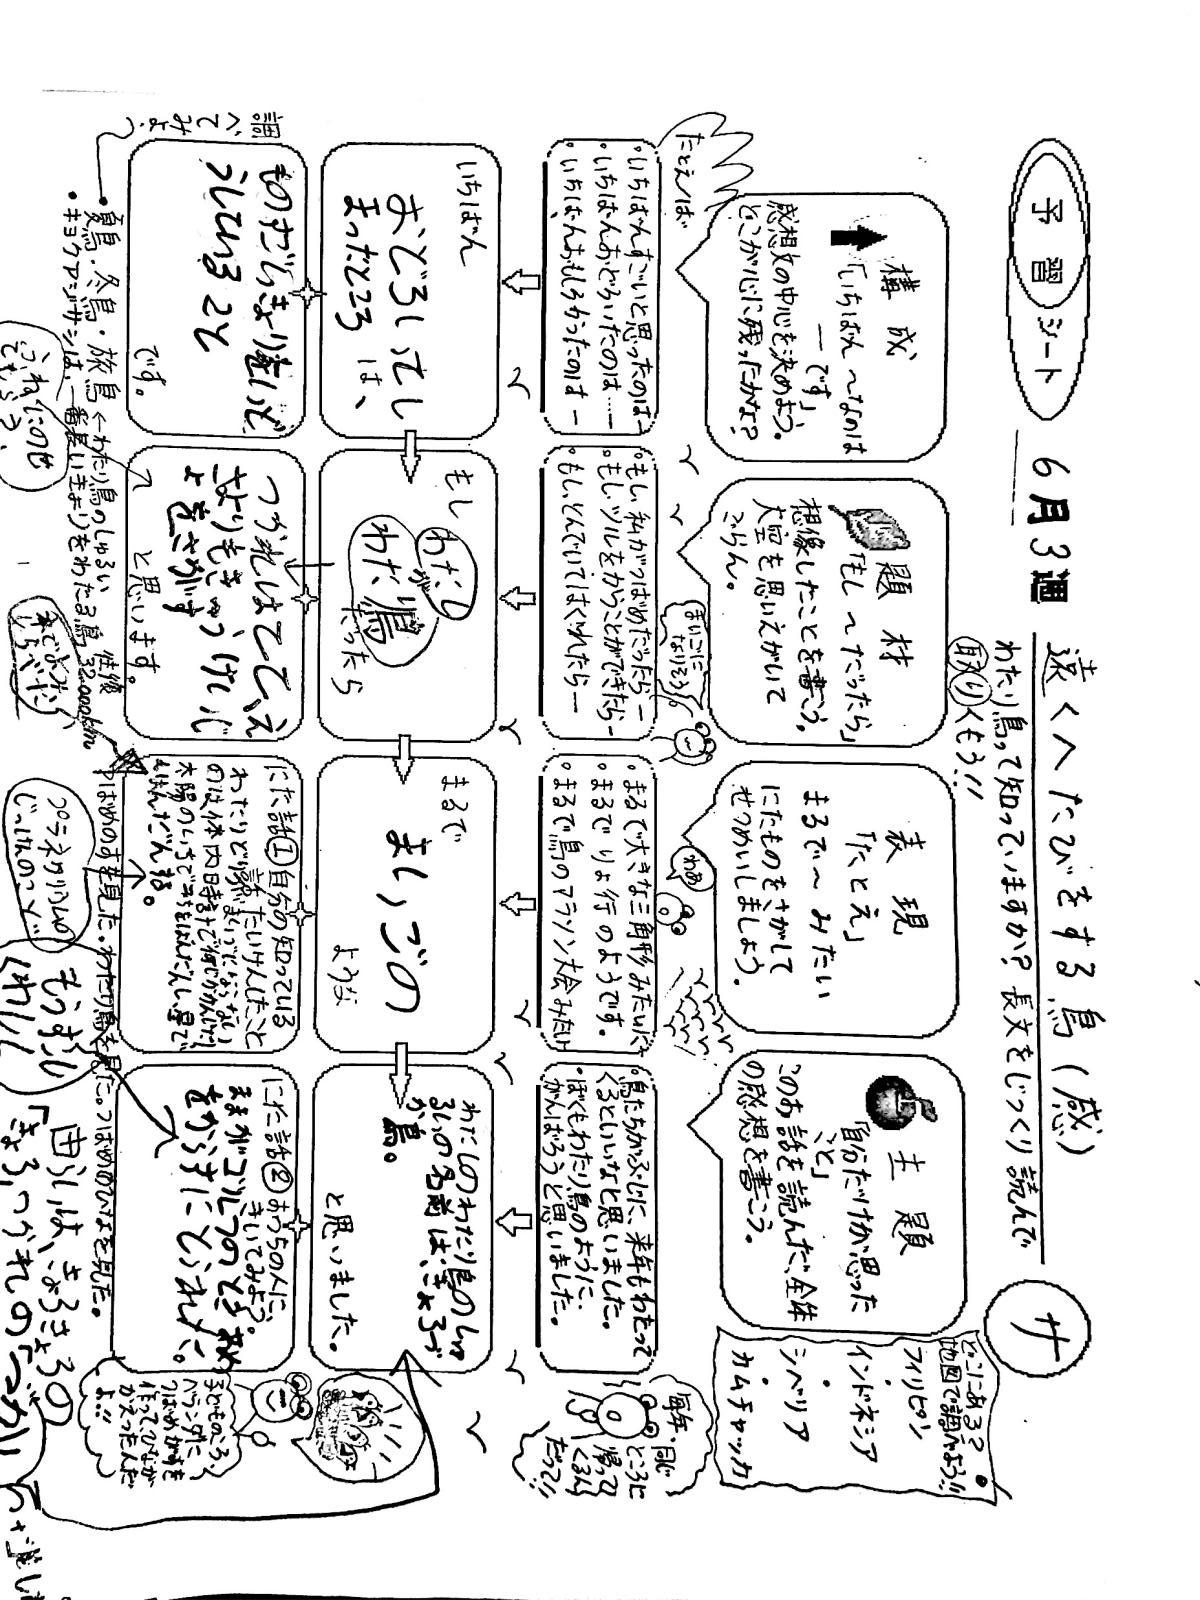 予習シート
6月3週
遠くへたびをする鳥（感）
わたり鳥って知っていますか？長文をじっくり読んで
取りくもう!!
サ
構成
「いちばん〜なのは
―です」
感想文の中心を決めよう。
どこが心に残ったかな？
題材
「もし〜だったら」
想像したことを書こう。
大空を思いえがいて
ごらん。
表現
「たとえ」
まるで〜みたい
にたものをさがして
せつめいしましょう。
主題
「自分だけが思った
こと」
このお話を読んだ、全体
の感想を書こう。
どこにある？
地図で調べよう!!
フィリピン
インドネシア
シベリア
カムチャッカ
たとえば
・いちばんすごいと思ったのは―
・いちばんおどろいたのは……
・いちばんおもしろかったのは―
・もし、私がつばめだったら―
・もし、ツルをかうことができたら―
・もし、とんでいてはぐれたら―
まいごに
なりそう
・まるで大きな三角形みたいに
・まるでりょ行のようです。
・まるで鳥のマラソン大会みたい
わあ
・鳥たちがぶじに、来年もわたって
くるといいなと思いました。
・ぼくもわたり鳥のように…
がんばろうと思いました。
毎年、同じ
ところに
帰って
くるん
だって!!
いちばん
おどろいてし
まったところ
は、
もし
わたし
が
わたり鳥
だったら
まるで
まいごの
ような
わたしのわたり鳥のしゅ
るいの名前は、きょろづ
か鳥。
と思いました。
ものすごいきょりをいど
うしていること
です。
つかれはてて、え
さよりもきゅうけいじ
ょをさがす
と思います。
にた話① 自分の知っている
話、たいけんしたこと
わたりどりがまいごにならない
のは体内時計で何じかんしたり
太陽のいちでみちをはんだんし、星で
はんだんする。
にた話② おうちの人に
きいてみよう。
ままがゴルフのときかめ
をからすにとられた。
子どものころ、
ベランダに
つばめがすを
作ってひなが
かえったんだ
よ!!
調べてみよう
・夏鳥・冬鳥・旅鳥←わたり鳥のしゅるい
・キョクアジサシは、一番長いきょりをわたる鳥 往復32000km
つばめのすを見た。わたり鳥を見た。つばめのひなを見た。
ふねにのせ
てもらう。
本でよみたら
しらべたら
プラネタリウムの
じっけんのこと
もうすこし
くわしく
由らいは、きょろきょろの
「きょろ」つかれの「づか」